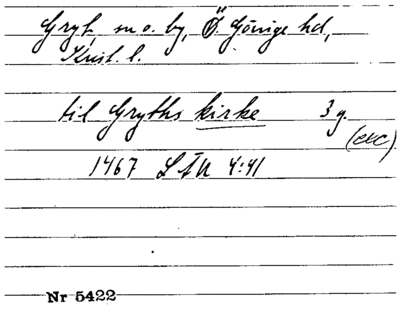 Gryt, sn o. by, Ö. Göinge hd,
Krist. l.
til Gryths kirke 3 g.
(exc)
1467 LÄU 4:41
Nr 5422